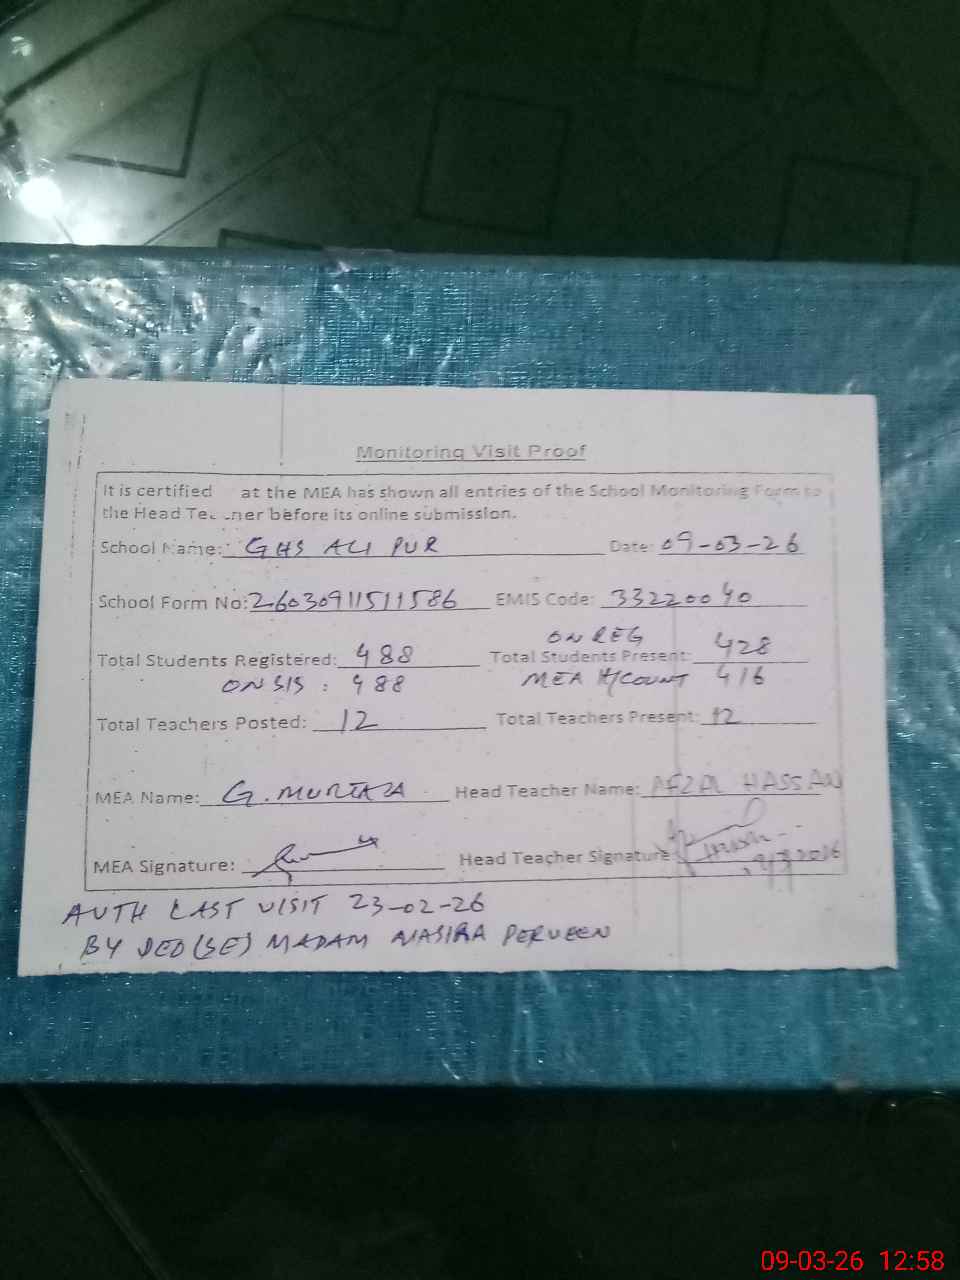 Monitoring Visit Proof
It is certified at the MEA has shown all entries of the School Monitoring Form to
the Head Te ner before its online submission.
School Name: GHS ALI PUR Date: 09-03-26
School Form No: 26030911511586 EMIS Code: 33220040
ON REG
Total Students Registered: 488 Total Students Present: 428
ON SIS : 488 MEA H/COUNT 416
Total Teachers Posted: 12 Total Teachers Present: 12
MEA Name: G. MURTAZA Head Teacher Name: AFZAL HASSAN
MEA Signature: Head Teacher Signature
AUTH LAST VISIT 23-02-26
BY DEO (SE) MADAM NASIRA PERVEEN
09-03-26 12:58